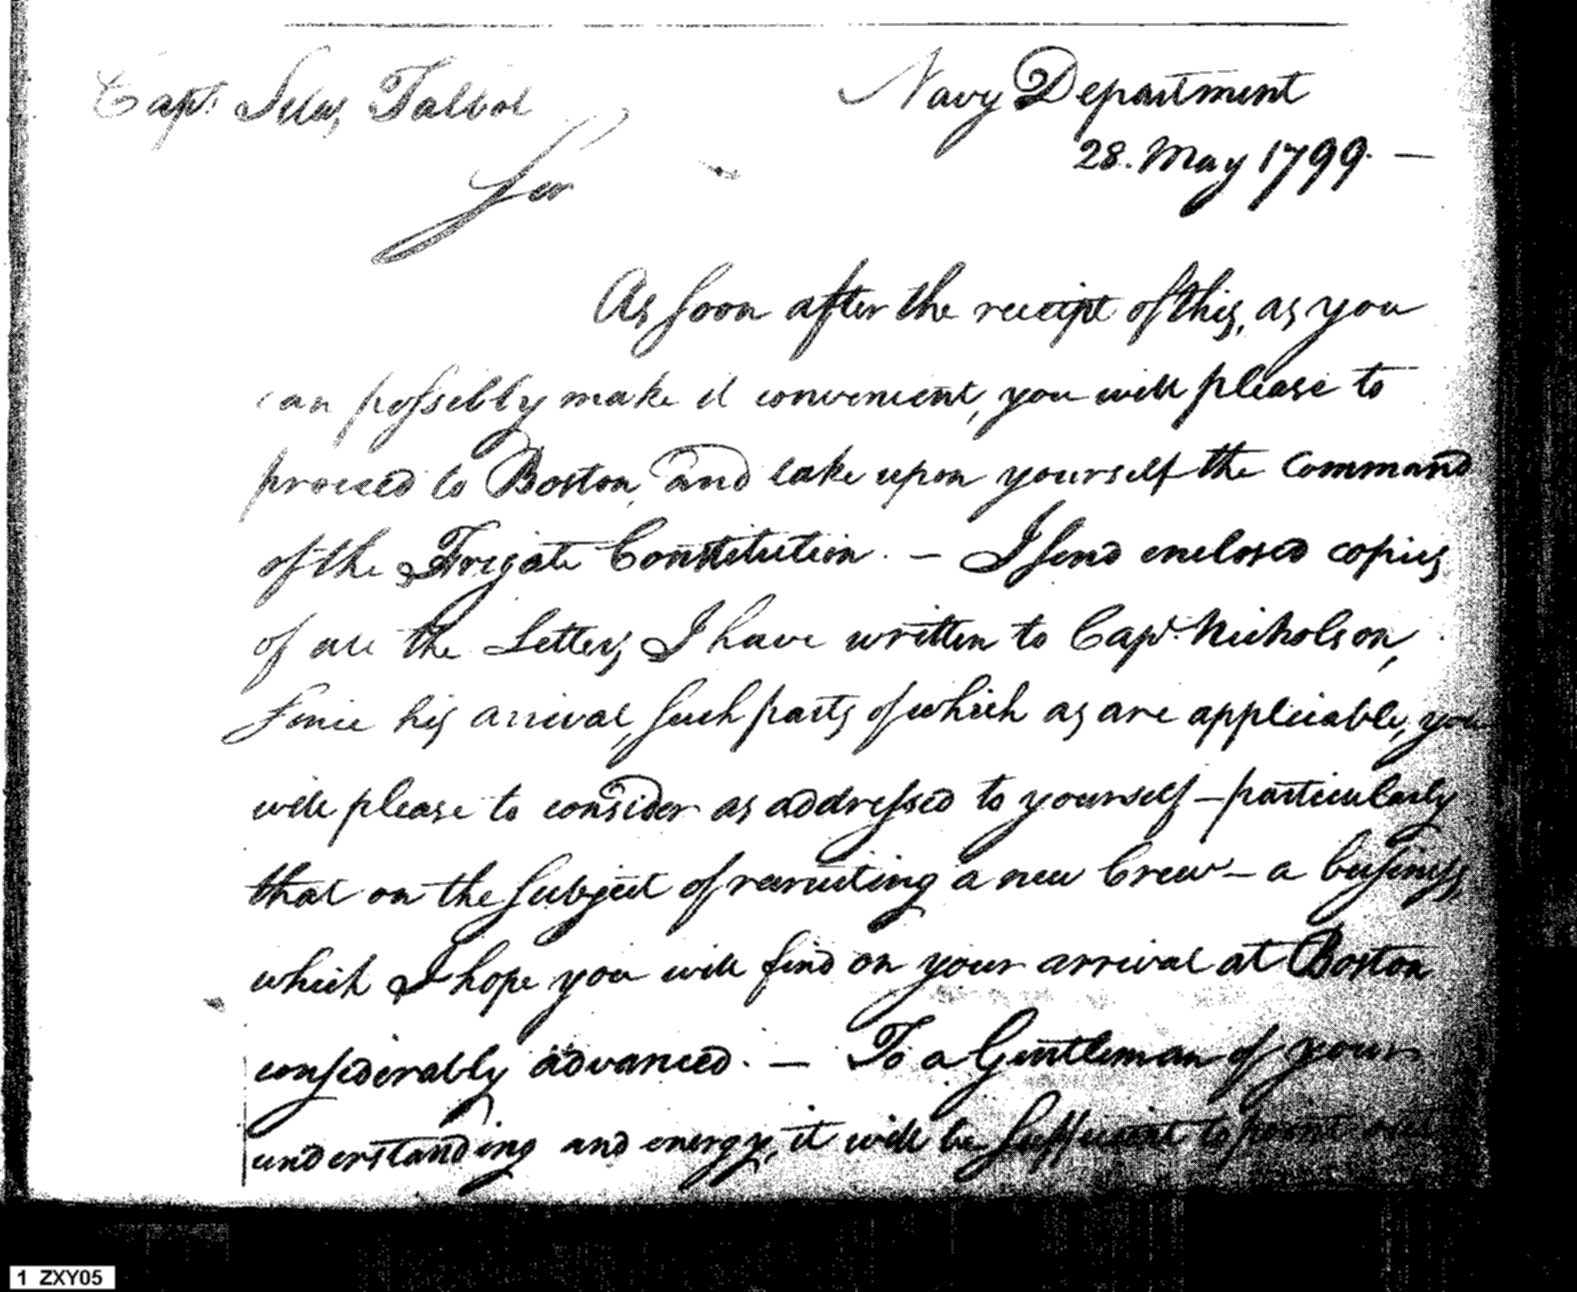 Capt. Silas Talbot
Navy Department
28. May 1799. —
Sir
As soon after the receipt of this, as you
can possibly make it convenient, you will please to
proceed to Boston, and take upon yourself the Command
of the Frigate Constitution. — I send enclosed copies
of all the Letters I have written to Capt. Nicholson,
since his arrival, such parts of which as are applicable, you
will please to consider as addressed to yourself – particularly
that on the subject of recruiting a new Crew – a business
which I hope you will find on your arrival at Boston
considerably advanced. — To a Gentleman of your
understanding and energy, it will be sufficient to point out
1 ZXY05